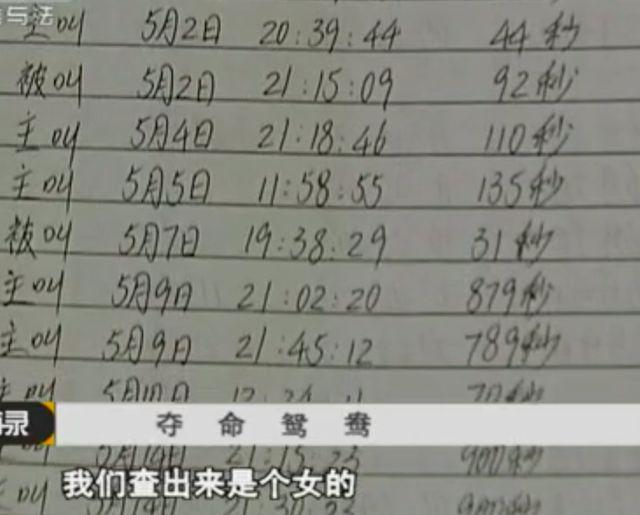 与法
主叫 5月2日 20:39:44 44秒
被叫 5月2日 21:15:09 92秒
主叫 5月4日 21:18:46 110秒
主叫 5月5日 11:58:55 135秒
被叫 5月7日 19:38:29 31秒
主叫 5月9日 21:02:20 879秒
主叫 5月9日 21:45:12 789秒
主叫 5月10日
录 夺命鸳鸯
5月14日 21:15:23 900秒
我们查出来是个女的